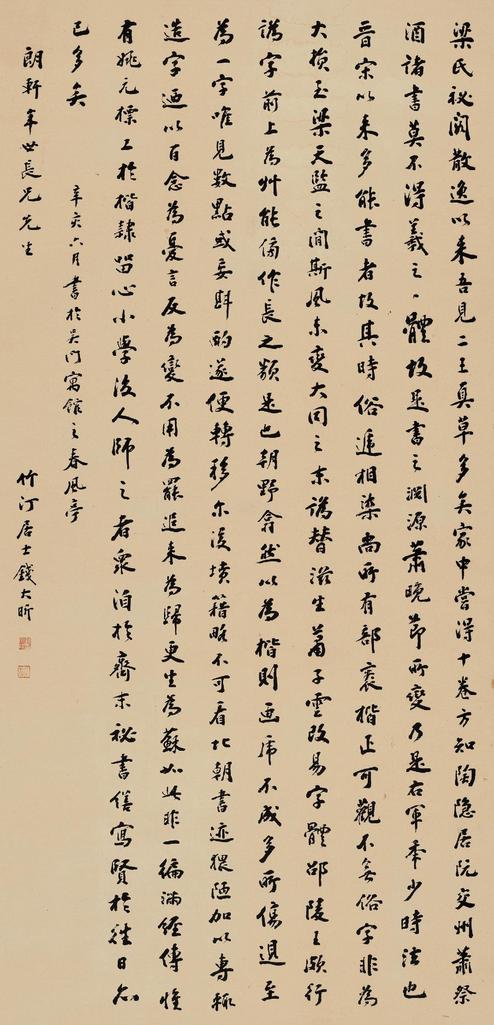 梁氏祕閣散逸以來吾見二王真草多矣家中嘗得十卷方知陶隐居阮交州蕭祭
酒諸書莫不得羲之丶體故是書之淵源蕭晚節所變乃是右軍年少時法也
晉宋以来多能書者故其時俗遞相染尚所有部袠楷正可觀不無俗字非為
大損至梁天監之間斯風未變大同之末譌替滋生蕭子雲改易字體邵陵王頗行
譌字前上為艸能傍作長之類是也朝野翕然以為楷則画虎不成多所傷退至
為一字唯見數點或妄斟酌遂便轉移尔後墳籍略不可看北朝書迹猥陋加以專輒
造字迺以百念為憂言反為變不用為罷追来為歸更生為蘇如此非一徧滿經傳惟
有姚元標工於楷隸留心小學後人師之者眾洎於齊末祕書繕寫賢於往日
已多矣
辛亥六月書於吳門寓館之春風亭
朗軒年世長兄先生
竹汀居士錢大昕